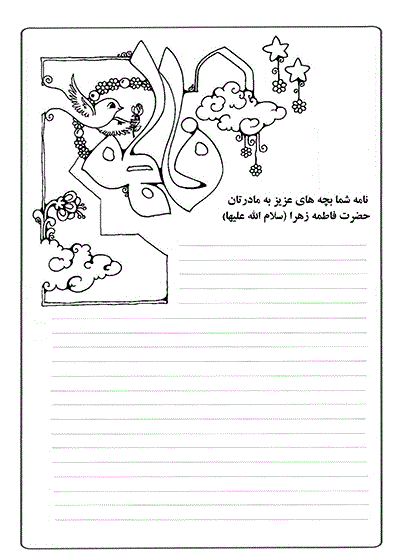 فاطمه
نامه شما بچه های عزیز به مادرتان
حضرت فاطمه زهرا (سلام الله علیها)